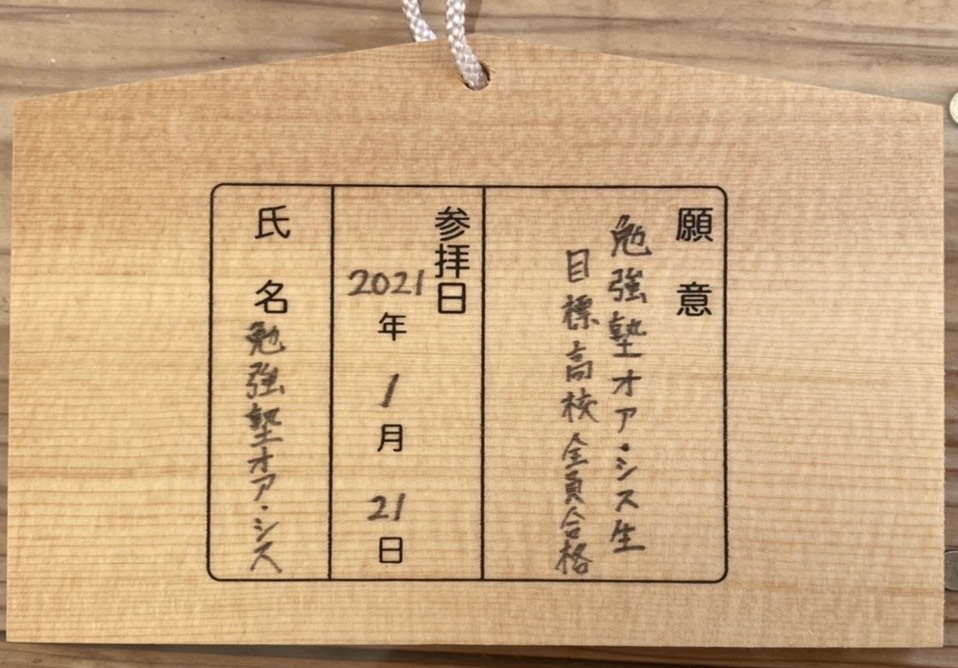 願意
勉強塾オア・シス生
目標高校全員合格
参拝日
2021年1月21日
氏名
勉強塾オア・シス